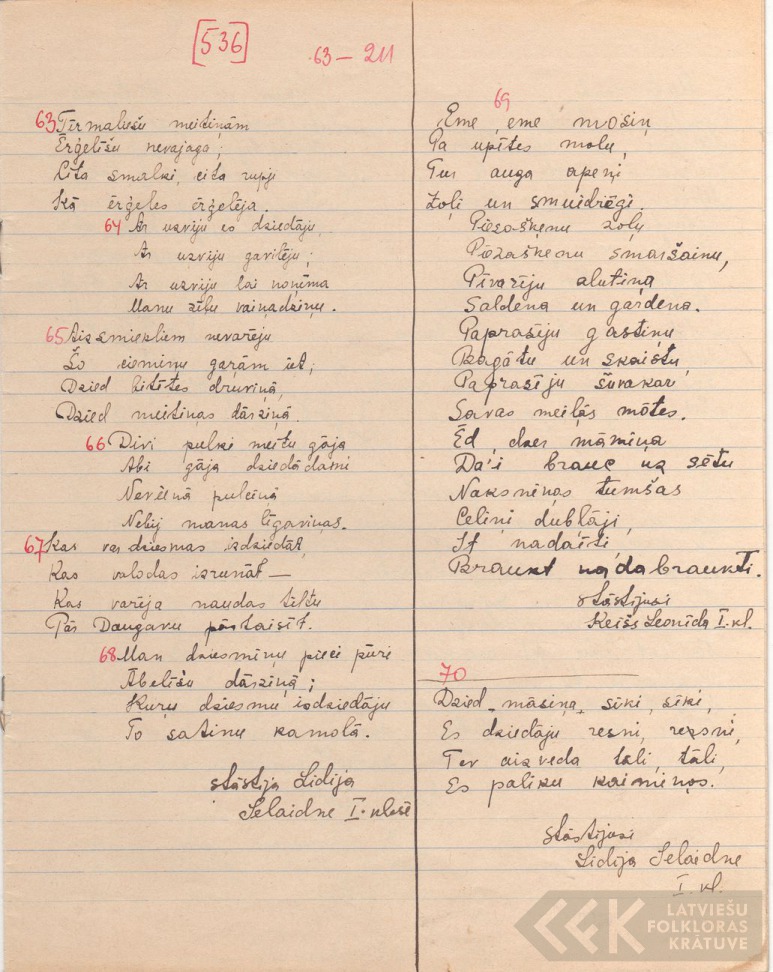 [536] 63 – 211
63 Tīrmaliešu meitiņām
Ērģelīšu nevajaga;
Cita smalki, cita rupji
Kā ērģeles ērģelēja.
64 Ar uzviju es dziedāju,
Ar uzviju gavilēju;
Ar uzviju lai noņēma
Manu zīļu vainadziņu.
65 Aiz smiekliem nevarēju
Šo ciemiņu garām iet;
Dzied bitītes druviņā,
Dzied meitiņas dārziņā.
66 Divi pulki meitu gāja
Abi gāja dziedādami
Nevienā pulciņā
Nebij manas līgaviņas.
67 Kas var dziesmas izdziedāt,
Kas valodas izrunāt —
Kas varēja naudas tiltu
Pār Daugavu pārtaisīt.
68 Man dziesmiņu pieci pūri
Ābelīšu dārziņā;
Kuru dziesmu izdziedāju
To satinu kamolā.
stāstīja Lidija
Selaidne I. klasē
69
Eme, eme mosiņ
Pa upītes molu,
Tur auga apeņi
Zoļi un smuidrēgi.
Pīzaškenu zoļu
Pīzaškenu smaršainu,
Pīvarēju alutiņa
Saldena un gardena.
Paprasīju gastiņu
Bagātu un skaistu,
Paprasīju šuvakar
Savas meiļās mōtes.
Ēd, dzer māmiņa
Da'i brauc uz sētu
Naksniņas tumšas
Celiņi dubļāji,
It nadaīti,
Braukt na'da braukti.
stāstījusi
Keišs Leonīda I. kl.
70
Dzied, māsiņa, sīki, sīki,
Es dziedāju resni, resni,
Tev aizveda tāli, tāli,
Es paliku kaimiņos.
Stāstījusi
Lidija Selaidne
I. kl.
LATVIEŠU
FOLKLORAS
KRĀTUVE